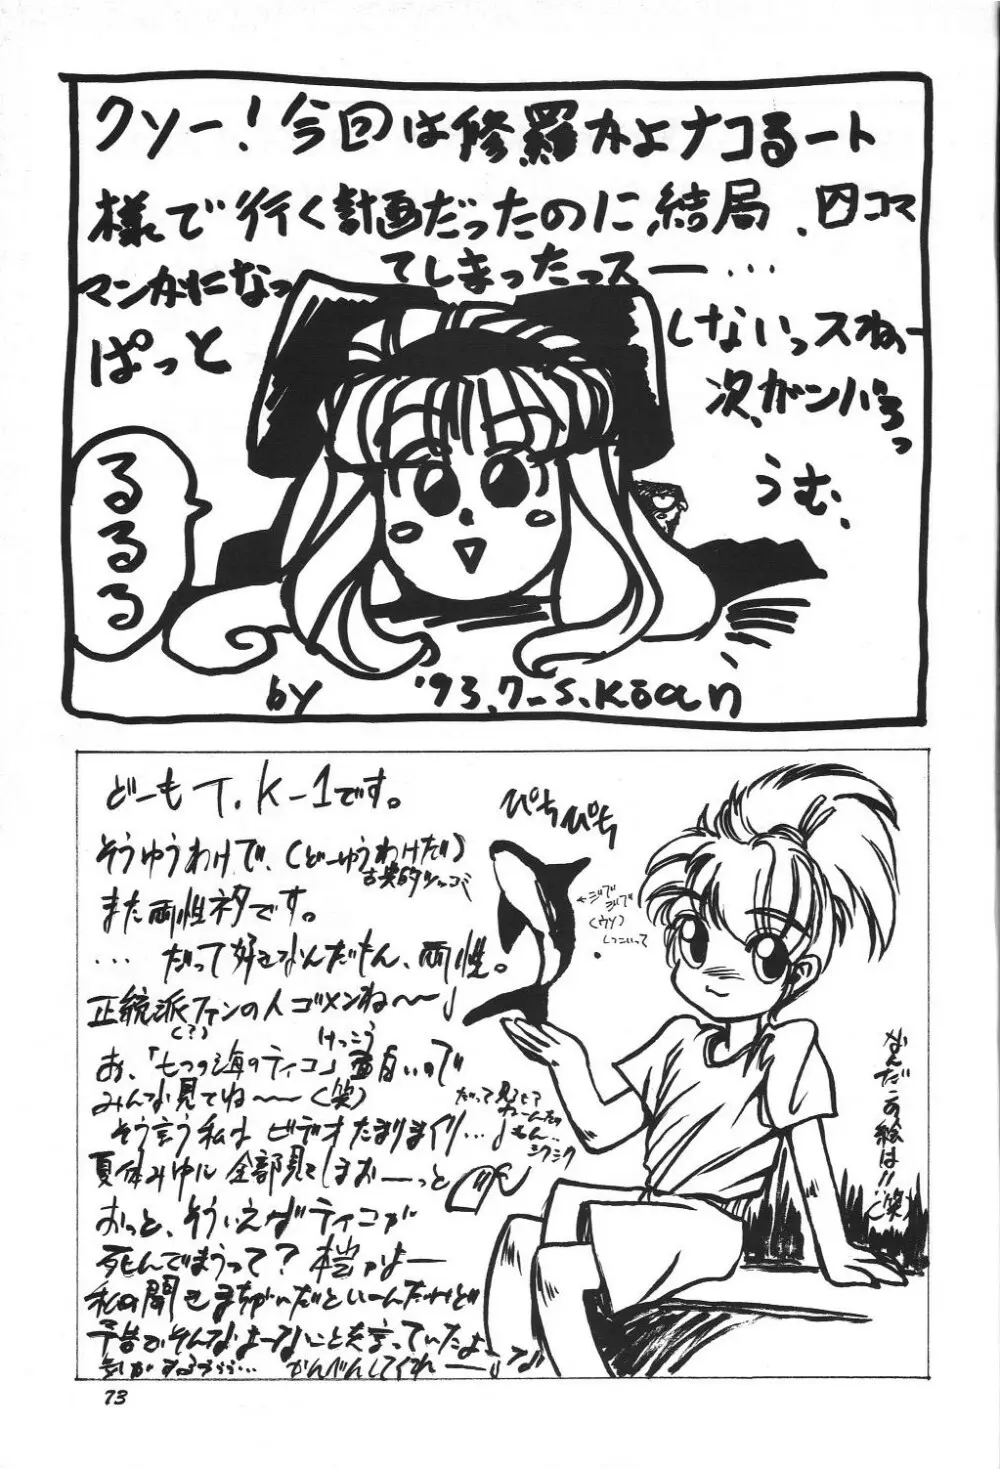 クソー！今回は修羅かよナコるート
様で行く計画だったのに、結局、四コマ
マンガになっ
てしまったっスー…
ぱっと
しないっスねー
次、ガンバろっ
うむ、
るるる
by '93.7_S.Kōan
どーもT.K-1です。
そうゆうわけで、(どーゆうわけだ)
古典的ツッコミ
また両性ネタです。
…だって好きなんだもん、両性。
正統派ファンの人ゴメンね～～」
(？)
けっこう
あ、「七つの海のティコ」面白いので
みんな見てね～～(笑)
そう言う私は ビデオたまりまくり…」
だって見るヒマ
ねーんだ
もん…
シクシク
夏休みゆル 全部見てしまおーーっと
おっと、そういえばティコが
死んでまうって？本当かよー
私の聞きまちがいだといーんだけど
予告でそんなよーなことを言っていたよー
気がするつうう… かんべんしてくれー
ぴちぴち
←ジブ
ジブ
(ウソ)
しつこいって
なんだこの絵は!!(笑)
73